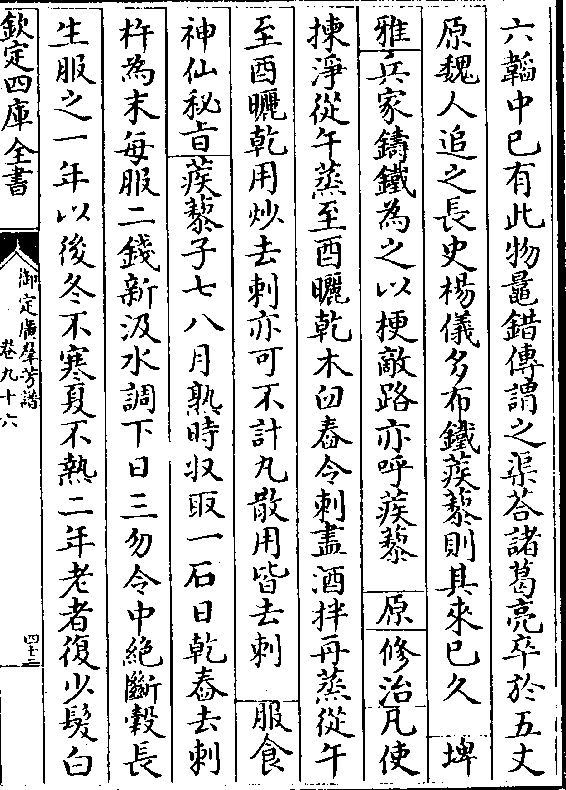 六韜中已有此物鼂錯傳謂之渠荅諸葛亮卒於五丈
原魏人追之長史楊儀多布鐵蒺藜則其來已久 埤
雅兵家鑄鐵為之以梗敵路亦呼蒺藜 原 修治凡使
揀淨從午蒸至酉曬乾木臼舂令刺盡酒拌再蒸從午
至酉曬乾用炒去刺亦可不計丸散用皆去刺 服食
神仙秘旨蒺藜子七八月熟時收取一石日乾舂去刺
杵為末每服二錢新汲水調下日三勿令中絶斷穀長
生服之一年以後冬不寒夏不熱二年老者復少髮白
欽定四庫全書
御定廣羣芳譜
卷九十六
四十三